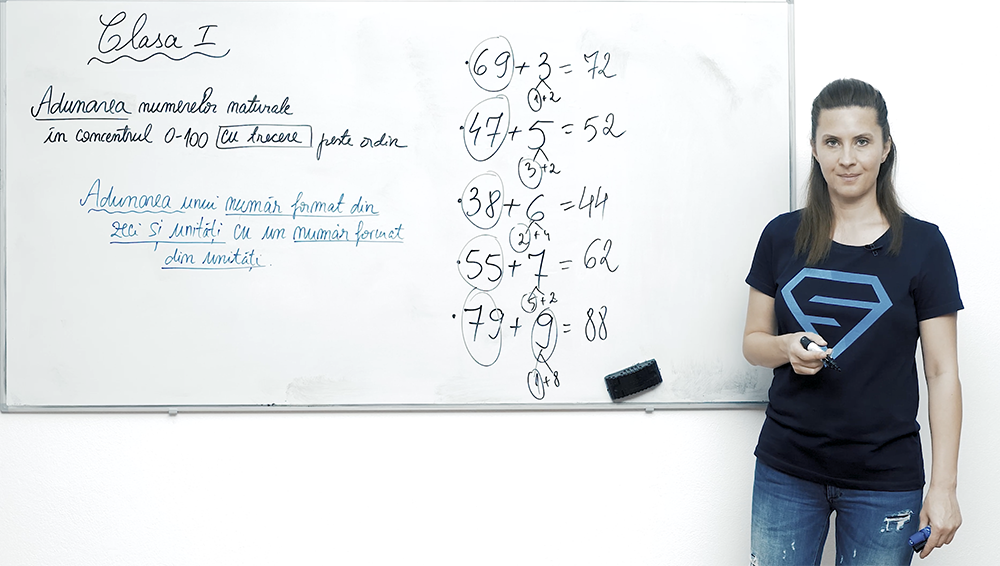 Clasa I
Adunarea numerelor naturale
în concentrul 0-100 cu trecere peste ordin
Adunarea unui număr format din
zeci și unități cu un număr format
din unități.
69 + 3 = 72
1+2
47 + 5 = 52
3+2
38 + 6 = 44
2+4
55 + 7 = 62
5+2
79 + 9 = 88
1+8